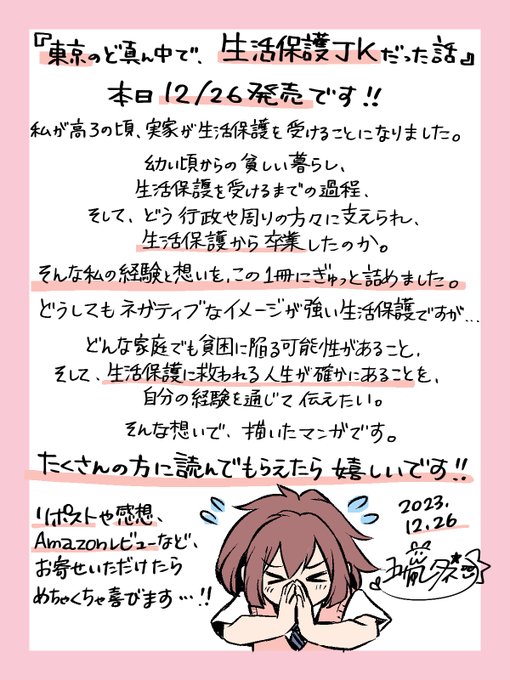 『東京のど真ん中で、生活保護JKだった話』
本日12/26発売です!!
私が高3の頃、実家が生活保護を受けることになりました。
幼い頃からの貧しい暮らし、
生活保護を受けるまでの過程、
そして、どう行政や周りの方々に支えられ、
生活保護から卒業したのか。
そんな私の経験と想いを、この1冊にぎゅっと詰めました。
どうしてもネガティブなイメージが強い生活保護ですが…
どんな家庭でも貧困に陥る可能性があること、
そして、生活保護に救われる人生が確かにあることを、
自分の経験を通じて伝えたい。
そんな想いで、描いたマンガです。
たくさんの方に読んでもらえたら嬉しいです!!
リポストや感想、
Amazonレビューなど、
お寄せいただけたら
めちゃくちゃ喜びます…!!
2023.
12.26